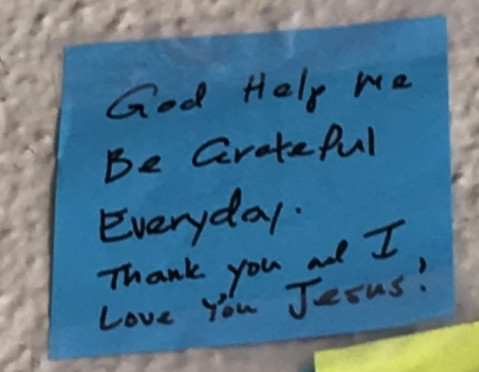 God Help me
Be Grateful
Everyday.
Thank you and I
Love You Jesus!